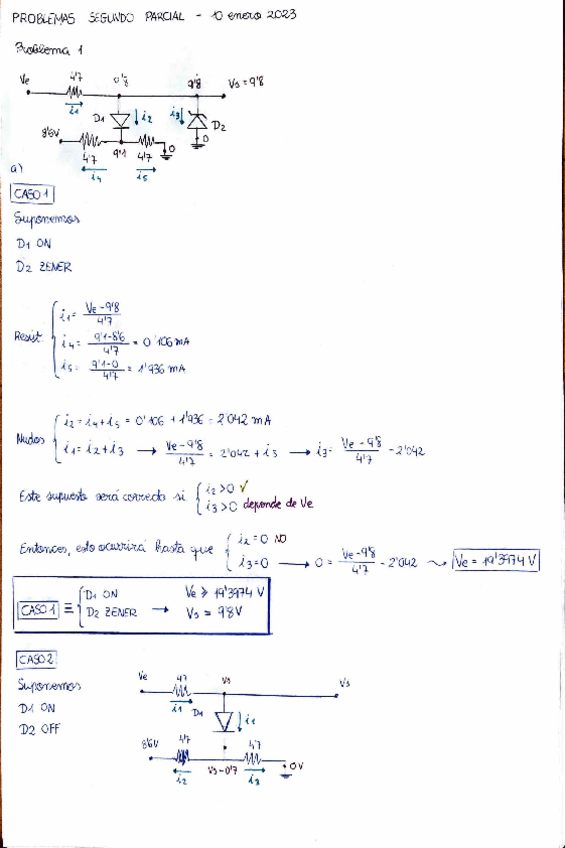 PROBLEMAS SEGUNDO PARCIAL - 10 enero 2023
Problema 1
Ve 4'7 9'8 9'8 Vs = 9'8
i1 D1 i2 i3 D2
8'6V 4'7 9'1 4'7 0 0
i4 i5
a)
CASO 1
Suponemos
D1 ON
D2 ZENER
Resist. i1 = Ve - 9'8 / 4'7
i4 = 9'1 - 8'6 / 4'7 = 0'106 mA
i5 = 9'1 - 0 / 4'7 = 1'936 mA
Nudos i2 = i4 + i5 = 0'106 + 1'936 = 2'042 mA
i1 = i2 + i3 → Ve - 9'8 / 4'7 = 2'042 + i3 → i3 = Ve - 9'8 / 4'7 - 2'042
Este supuesto será correcto si i2 > 0 ✓
i3 > 0 depende de Ve
Entonces, esto ocurrirá hasta que i2 = 0 NO
i3 = 0 → 0 = Ve - 9'8 / 4'7 - 2'042 ⤳ Ve = 19'3974 V
CASO 1 ≡ D1 ON Ve ≥ 19'3974 V
D2 ZENER → Vs = 9'8 V
CASO 2
Suponemos
D1 ON
D2 OFF
Ve 4'7 Vs Vs
i1 D1 i1
8'6V 4'7 4'7
Vs - 0'7 0V
i2 i3